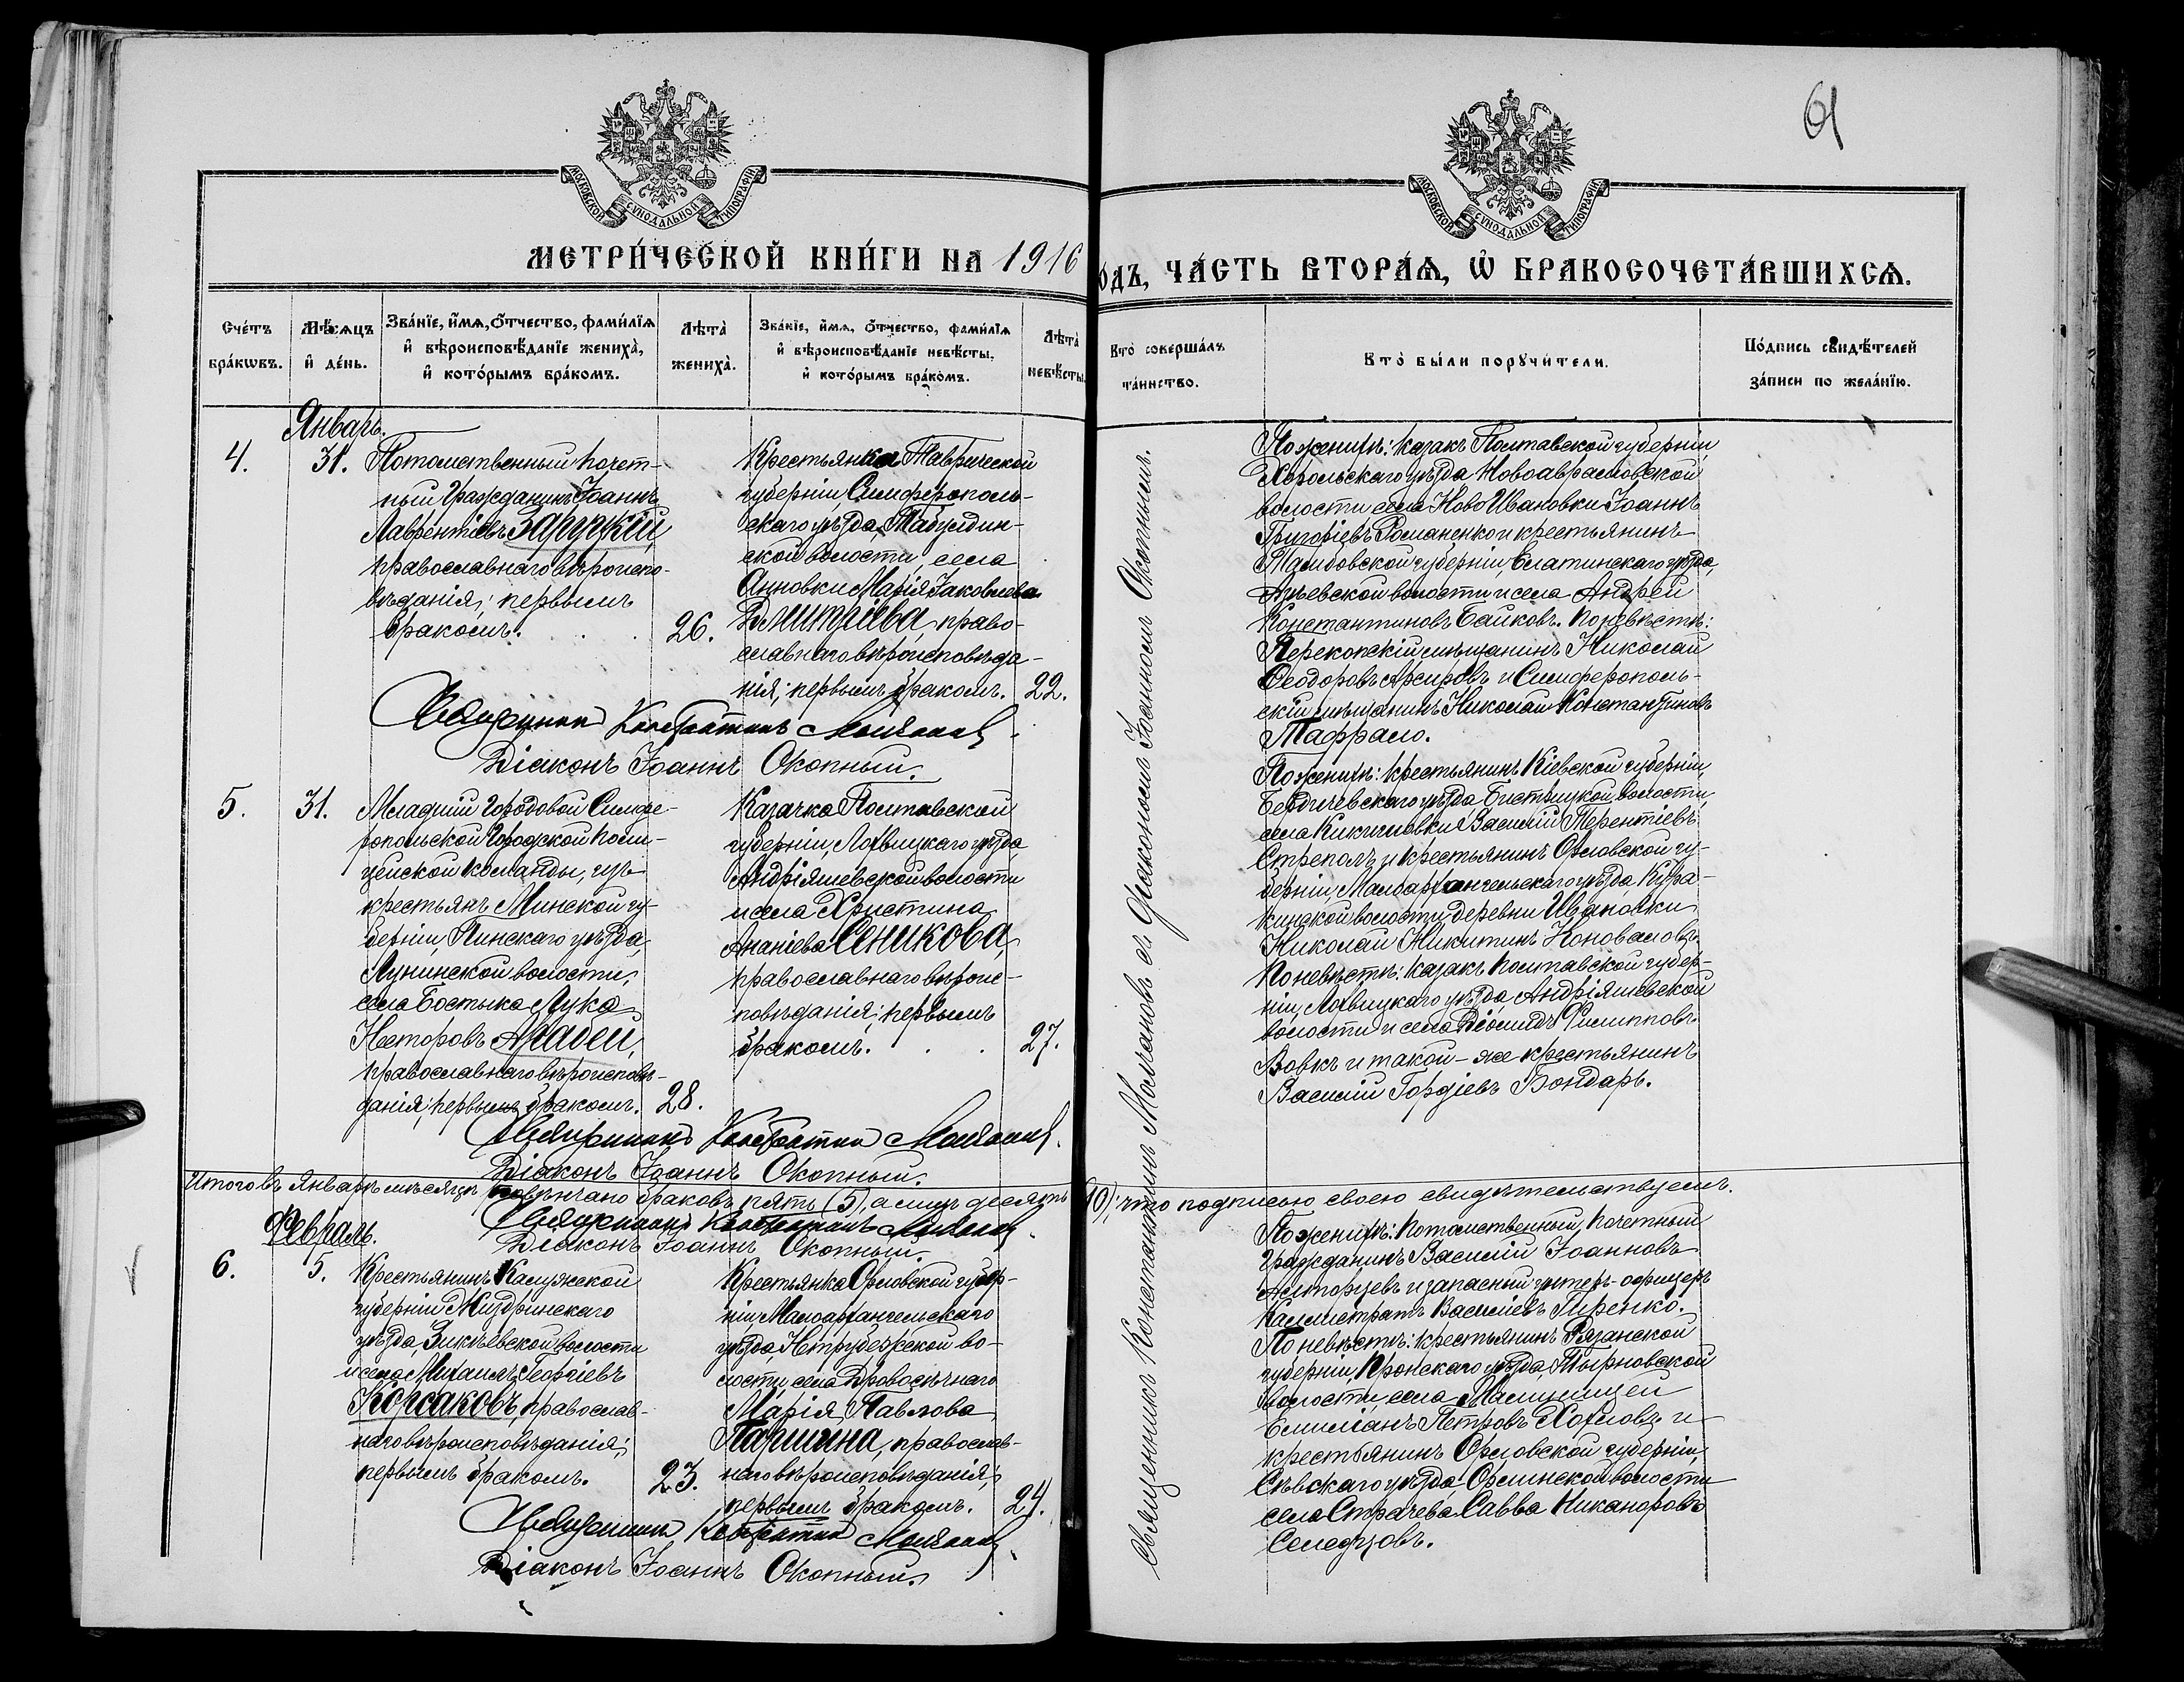 61
МОСКОВСКОЙ СѴНОДАЛЬНОЙ ТИПОГРАФІИ
МОСКОВСКОЙ СѴНОДАЛЬНОЙ ТИПОГРАФІИ
МЕТРИ́ЧЕСКОЙ КНИ́ГИ НА 1916
ОДЪ, ЧА́СТЬ ВТОРА́Ѧ, Ѡ҆ БРАКОСОЧЕТА́ВШИХСѦ.
Сче́тъ бра́кѡвъ.
Мѣ́сяцъ и҆ де́нь.
Зва́нїе, и҆́мѧ, ѻ҆́тчество, фами́лїѧ и҆ вѣроисповѣ́данїе жениха̀, и҆ кото́рымъ бра́комъ.
Лѣта̀ жениха̀.
Зва́нїе, и҆́мѧ, ѻ҆́тчество, фами́лїѧ и҆ вѣроисповѣ́данїе невѣ́сты, и҆ кото́рымъ бра́комъ.
Лѣта̀ невѣ́сты.
Кто̀ соверша́лъ та́инство.
Кто̀ бы́ли порꙋчи́тели.
По́дпись свидѣ́телей за́писи по жела́нїю.
Январь.
4.
31.
Потомственный почет-
ный гражданинъ Іоаннъ
Лаврентіевъ Заруцкій
православнаго вѣроиспо-
вѣданія; первымъ
бракомъ.
26.
Крестьянка Таврической
губерніи, Симферополь-
скаго уѣзда, Табулдин-
ской волости, села
Анновки Марія Іаковлева
Димитріева, право-
славнаго вѣроисповѣда-
нія; первымъ бракомъ.
22.
Священникъ Константинъ Молчановъ.
Діаконъ Іоаннъ Окопный.
По женихѣ: казакъ Полтавской губерніи
Хорольскаго уѣзда Новоаврамовской
волости села НовоИвановки Іоаннъ
Григоріевъ Романенко и крестьянинъ
Тамбовской губерніи, Елатинскаго уѣзда,
волости и села Андрей
Константиновъ Байковъ. По невѣстѣ:
Перекопскій мѣщанинъ Николай
Ѳеодоровъ и Симферополь-
скій мѣщанинъ Николай Константиновъ
Таффало.
5.
31.
Младшій городовой Симфе-
ропольской городской поли-
цейской команды, изъ
крестьянъ Минской гу-
берніи, Пинскаго уѣзда,
Лунинской волости,
села Бостыка Лука
Несторовъ Агабей,
православнаго вѣроисповѣ-
данія; первымъ бракомъ.
28.
Казачка Полтавской
губерніи, Лохвицкаго уѣзда
Андріяшевской волости
и села Христина
Ананіева Сеникова,
православнаго вѣроис-
повѣданія; первымъ
бракомъ.
27.
Священникъ Константинъ Молчановъ.
Діаконъ Іоаннъ Окопный.
По женихѣ: крестьянинъ Кіевской губерніи,
Бердичевскаго уѣзда, волости,
села Кикишовки Василій Терентіевъ
и крестьянинъ Орловской гу-
берніи, Малоархангельскаго уѣзда, Кура-
кинской волости, деревни Ивановки
Николай Никитинъ Коноваловъ.
По невѣстѣ: казакъ Полтавской губер-
ніи, Лохвицкаго уѣзда, Андріяшевской
волости и села Діомидъ Филипповъ
Вовкъ и такой-же крестьянинъ
Василій Гордіевъ Бондарь.
Итого въ Январѣ мѣсяцѣ повѣнчано браковъ пять (5), а лицъ десять (10); что подписью своею свидѣтельствуемъ.
Священникъ Константинъ Молчановъ.
Діаконъ Іоаннъ Окопный.
Февраль.
6.
5.
Крестьянинъ Калужской
губерніи Жиздринскаго
уѣзда, Зикѣевской волости
и села Михаилъ Георгіевъ
Корсаковъ, православ-
наго вѣроисповѣданія;
первымъ бракомъ.
23.
Крестьянка Орловской губер-
ніи, Малоархангельскаго
уѣзда, Нетрубежской во-
лости, села Дровосѣчнаго
Марія Павлова
Паршина, православ-
наго вѣроисповѣданія;
первымъ бракомъ.
24.
Священникъ Константинъ Молчановъ
Діаконъ Іоаннъ Окопный.
По женихѣ: потомственный почетный
гражданинъ Василій Іоанновъ
и запасный унтеръ-офицеръ
Каллистратъ Василіевъ Гиренко.
По невѣстѣ: крестьянинъ Рязанской
губерніи, Пронскаго уѣзда, Тырновской
волости, села Малинищей
Емиліанъ Петровъ Хохловъ и
крестьянинъ Орловской губерніи,
Сѣвскаго уѣзда, Орлинской волости
села Страчева Савва Никаноровъ
Селедцовъ.
Священникъ Константинъ Молчановъ съ діакономъ Іоанномъ Окопнымъ.